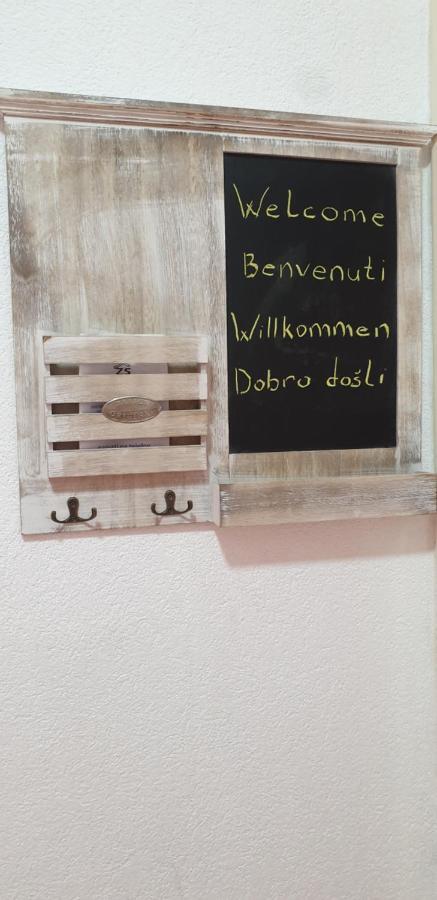 Welcome
Benvenuti
Willkommen
Dobro došli